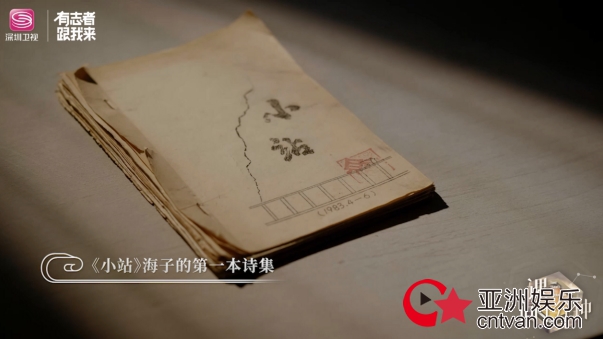 深圳卫视
有志者
跟我来
小站
(1983.4-6)
《小站》海子的第一本诗集
亚洲娱乐
cntvan.com